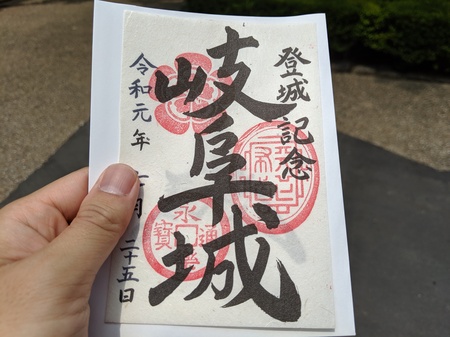 登城記念
岐阜城
令和元年 月二十五日
永 通
寶